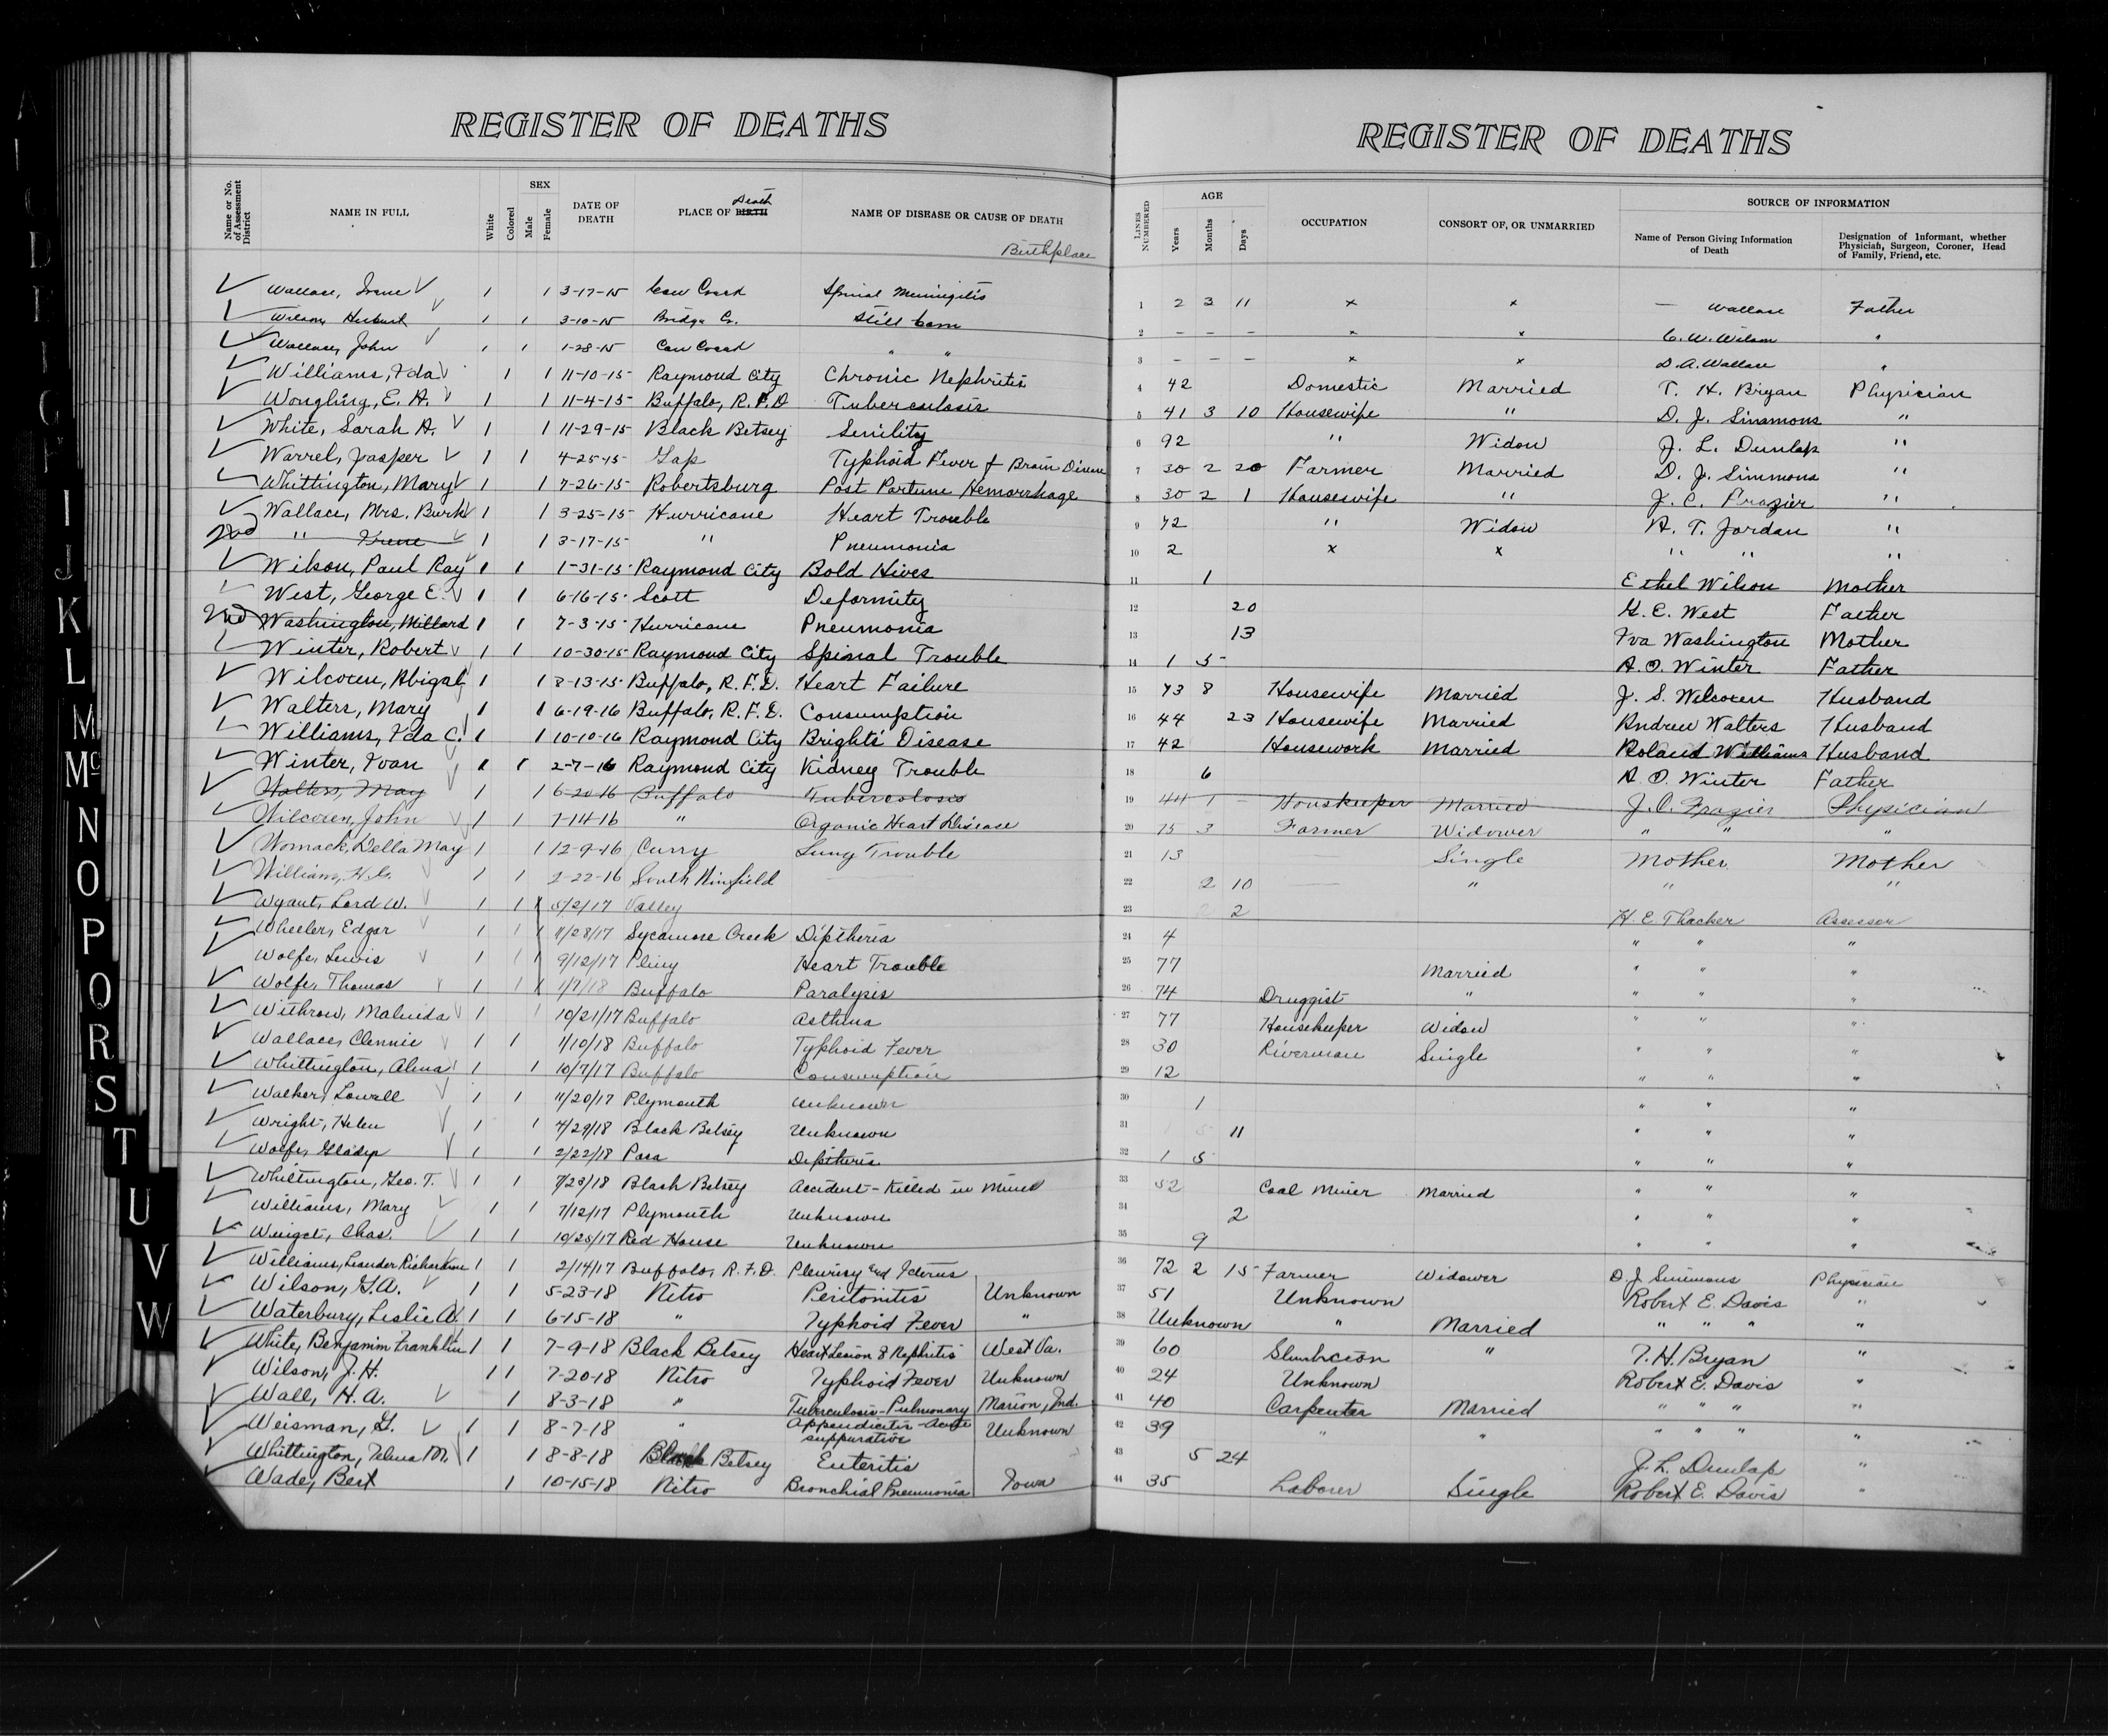 REGISTER OF DEATHS
Name or No. of Assessment District
NAME IN FULL
White
Colored
SEX
Male
Female
DATE OF DEATH
PLACE OF BIRTH Death
NAME OF DISEASE OR CAUSE OF DEATH
Birthplace
Wallace, Irene 1 1 3-17-15 Spinal Meningitis
Wilson, Hubert 1 1 3-10-15 Bridge Cr. Still born
Wallace, John 1 1 1-28-15 " "
Williams, Ida 1 1 11-10-15 Raymond City Chronic Nephritis
Wongling, E. A. 1 1 11-4-15 Buffalo, R.F.D Tuberculosis
White, Sarah A. 1 1 11-29-15 Black Betsey Senility
Warrel, Jasper 1 1 4-25-15 Gap Typhoid Fever & Brain Disease
Whittington, Mary 1 1 7-26-15 Robertsburg Post Partune Hemorrhage
Wallace, Mrs. Burk 1 1 3-25-15 Hurricane Heart Trouble
" Irene 1 1 3-17-15 " Pneumonia
Wilson, Paul Ray 1 1 1-31-15 Raymond City Bold Hives
West, George E. 1 1 6-16-15 Scott Deformity
Washington, Millard 1 1 7-3-15 Hurricane Pneumonia
Winter, Robert 1 1 10-30-15 Raymond City Spinal Trouble
Wilcoxen, Abigal 1 1 8-13-15 Buffalo, R.F.D. Heart Failure
Walters, Mary 1 1 6-19-16 Buffalo, R.F.D. Consumption
Williams, Ida C. 1 1 10-10-16 Raymond City Brights Disease
Winter, Ivan 1 1 2-7-16 Raymond City Kidney Trouble
Walters, May 1 1 6-20-16 Buffalo Tuberculosis
Wilcoxen, John 1 1 7-14-16 " Organic Heart Disease
Womack, Della May 1 1 12-9-16 Curry Lung Trouble
Williams, H.G. 1 1 2-22-16 South Winfield
Wyant, Lord W. 1 1 5/2/17 Valley
Wheeler, Edgar 1 1 11/28/17 Sycamore Creek Diptheria
Wolfe, Lewis 1 1 9/12/17 Pliny Heart Trouble
Wolfe, Thomas 1 1 1/7/18 Buffalo Paralysis
Withrow, Malinda 1 1 10/21/17 Buffalo Asthma
Wallace, Clennie 1 1 1/10/18 Buffalo Typhoid Fever
Whittington, Alma 1 1 10/7/17 Buffalo Consumption
Walker, Lowell 1 1 11/20/17 Plymouth Unknown
Wright, Helen 1 1 4/29/18 Black Betsey Unknown
Wolfe, Gladys 1 1 2/22/18 Paca Diptheria
Whittington, Geo. T. 1 1 7/23/18 Black Betsey Accident - Killed in Mines
Williams, Mary 1 1 7/12/17 Plymouth Unknown
Wright, Chas. 1 1 10/25/17 Red House Unknown
Williams, Leander Richardson 1 1 2/14/17 Buffalo, R.F.D. Pleurisy and Icterus
Wilson, G.A. 1 1 5-23-18 Nitro Peritonitis Unknown
Waterbury, Leslie A. 1 1 6-15-18 " Typhoid Fever "
White, Benjamin Franklin 1 1 7-9-18 Black Betsey Heart Lesion & Nephritis West Va.
Wilson, J.H. 1 1 7-20-18 Nitro Typhoid Fever Unknown
Wall, H.A. 1 8-3-18 " Tuberculosis - Pulmonary Marion, Ind.
Weisman, G. 1 1 8-7-18 " Appendicitis - Acute suppurative Unknown
Whittington, Velma M. 1 1 8-8-18 Black Betsey Enteritis
Wade, Bert 1 10-15-18 Nitro Bronchial Pneumonia Iowa
REGISTER OF DEATHS
LINES NUMBERED
AGE
Years
Months
Days
OCCUPATION
CONSORT OF, OR UNMARRIED
SOURCE OF INFORMATION
Name of Person Giving Information of Death
Designation of Informant, whether Physician, Surgeon, Coroner, Head of Family, Friend, etc.
1 2 3 11 x x — Wallace Father
2 – – – x x C.W. Wilson "
3 – – – x x D.A. Wallace "
4 42 Domestic Married T. H. Bryan Physician
5 41 3 10 Housewife " D. J. Simmons "
6 92 " Widow J. L. Dunlap "
7 30 2 20 Farmer Married D. J. Simmons "
8 30 2 1 Housewife " J. C. Frazier "
9 72 " Widow A. T. Jordan "
10 2 x x " " "
11 1 Ethel Wilson Mother
12 20 G. E. West Father
13 13 Iva Washington Mother
14 1 5 A. O. Winter Father
15 73 8 Housewife Married J. S. Wilcoxen Husband
16 44 23 Housewife Married Andrew Walters Husband
17 42 Housework Married Roland Williams Husband
18 6 A. O. Winter Father
19 44 1 – Houskeeper Married J. C. Frazier Physician
20 75 3 Farmer Widower " " "
21 13 Single Mother Mother
22 2 10 " " "
23 2 H. E. Thacker Assessor
24 4 " " "
25 77 Married " " "
26 74 Druggist " " " "
27 77 Housekeeper Widow " " "
28 30 Riverman Single " " "
29 12 " " "
30 1 " " "
31 11 " " "
32 1 5 " " "
33 52 Coal Miner Married " " "
34 2 " " "
35 9 " " "
36 72 2 15 Farmer Widower D. J. Simmons Physician
37 51 Unknown Robert E. Davis "
38 Unknown " Married " " " "
39 60 " T. H. Bryan "
40 24 Unknown Robert E. Davis "
41 40 Carpenter Married " " " "
42 39 " " " " " "
43 5 24 J. L. Dunlap "
44 35 Laborer Single Robert E. Davis "
I
J
K
L
M
Mc
N
O
P
Q
R
S
T
U
V
W